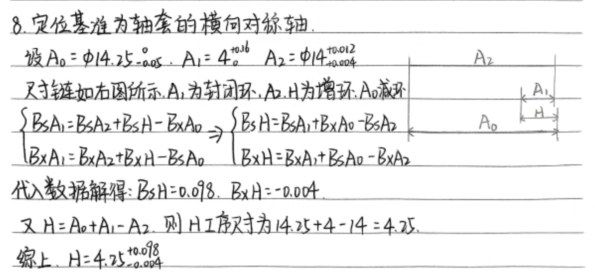 8. 定位基准为轴套的横向对称轴.
设A₀ = φ14.25⁰₋₀.₀₅. A₁ = 4⁺⁰·¹⁶₀ A₂ = φ14⁺⁰·⁰¹²₊₀.₀₀₄
尺寸链如右图所示. A₁为封闭环, A₂. H为增环. A₀减环
{BsA₁=BsA₂+BsH-BxA₀ ⇒ {BsH=BsA₁+BxA₀-BsA₂
BxA₁=BxA₂+BxH-BsA₀ BxH=BxA₁+BsA₀-BxA₂
A₂
A₁
H
A₀
代入数据解得: BsH=0.098. BxH=-0.004.
又 H=A₀+A₁-A₂. 则 H工序尺寸为14.25+4-14=4.25.
综上. H=4.25⁺⁰·⁰⁹⁸₋₀.₀₀₄